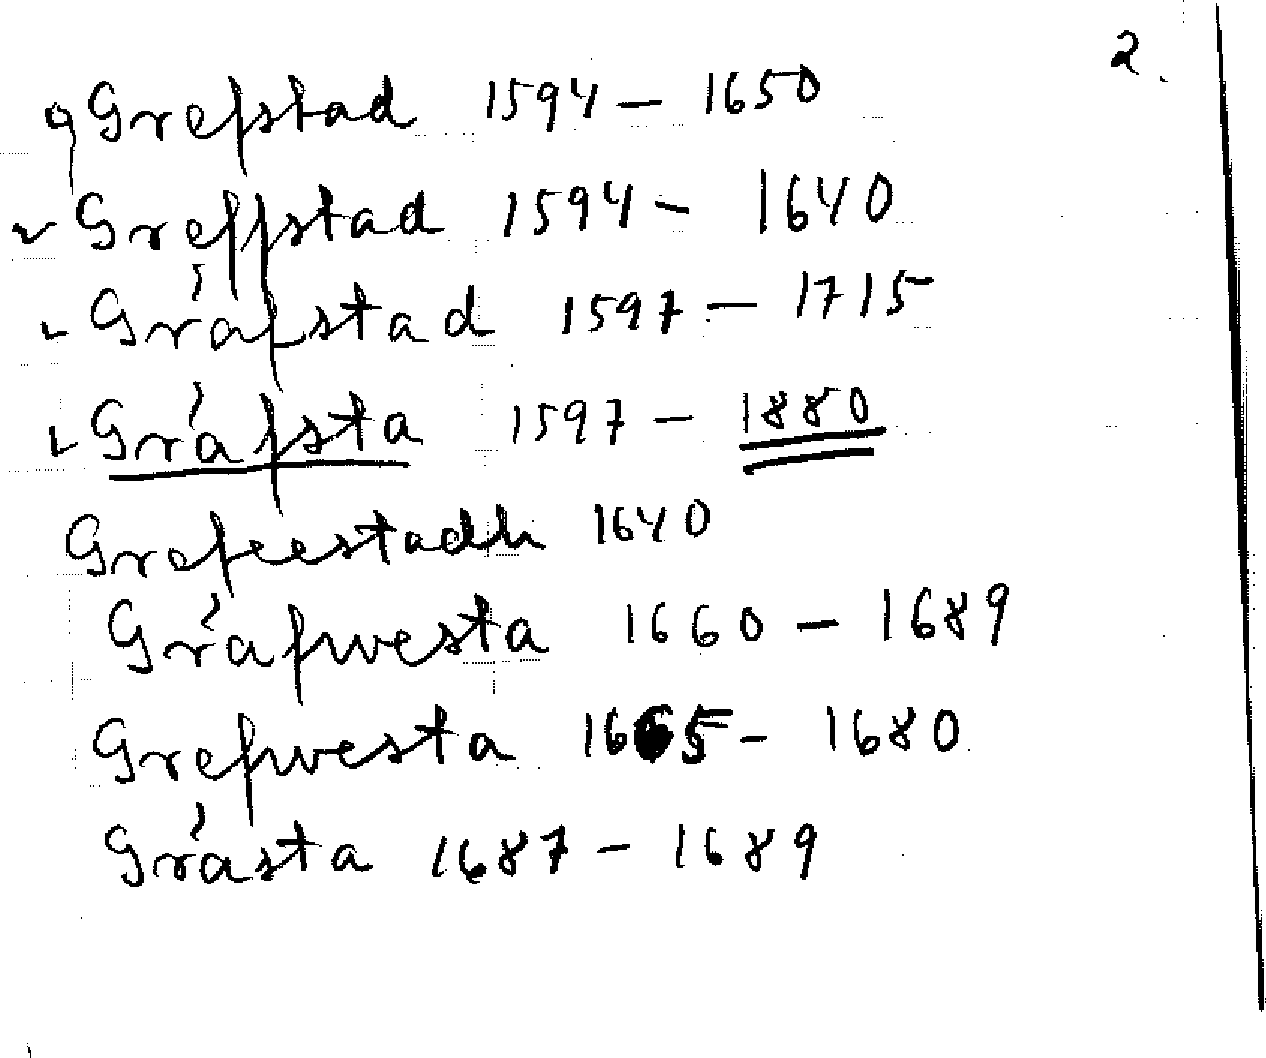 2.
Grefstad 1594 – 1650
Greffstad 1594 – 1640
Gräfstad 1597 – 1715
Gräfsta 1597 – 1880
Grefeestadh 1640
Gräfwesta 1660 – 1689
Grefwesta 1665 – 1680
Grästa 1687 – 1689